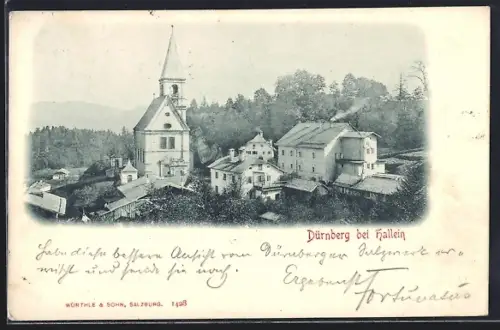 Dürnberg bei Hallein
Habe diese bessere Ansicht vom Dürnberger Salzwerk er-
wischt und sende sie noch.
Ergebenst
Fortunatus
WÜRTHLE & SOHN, SALZBURG. 1428